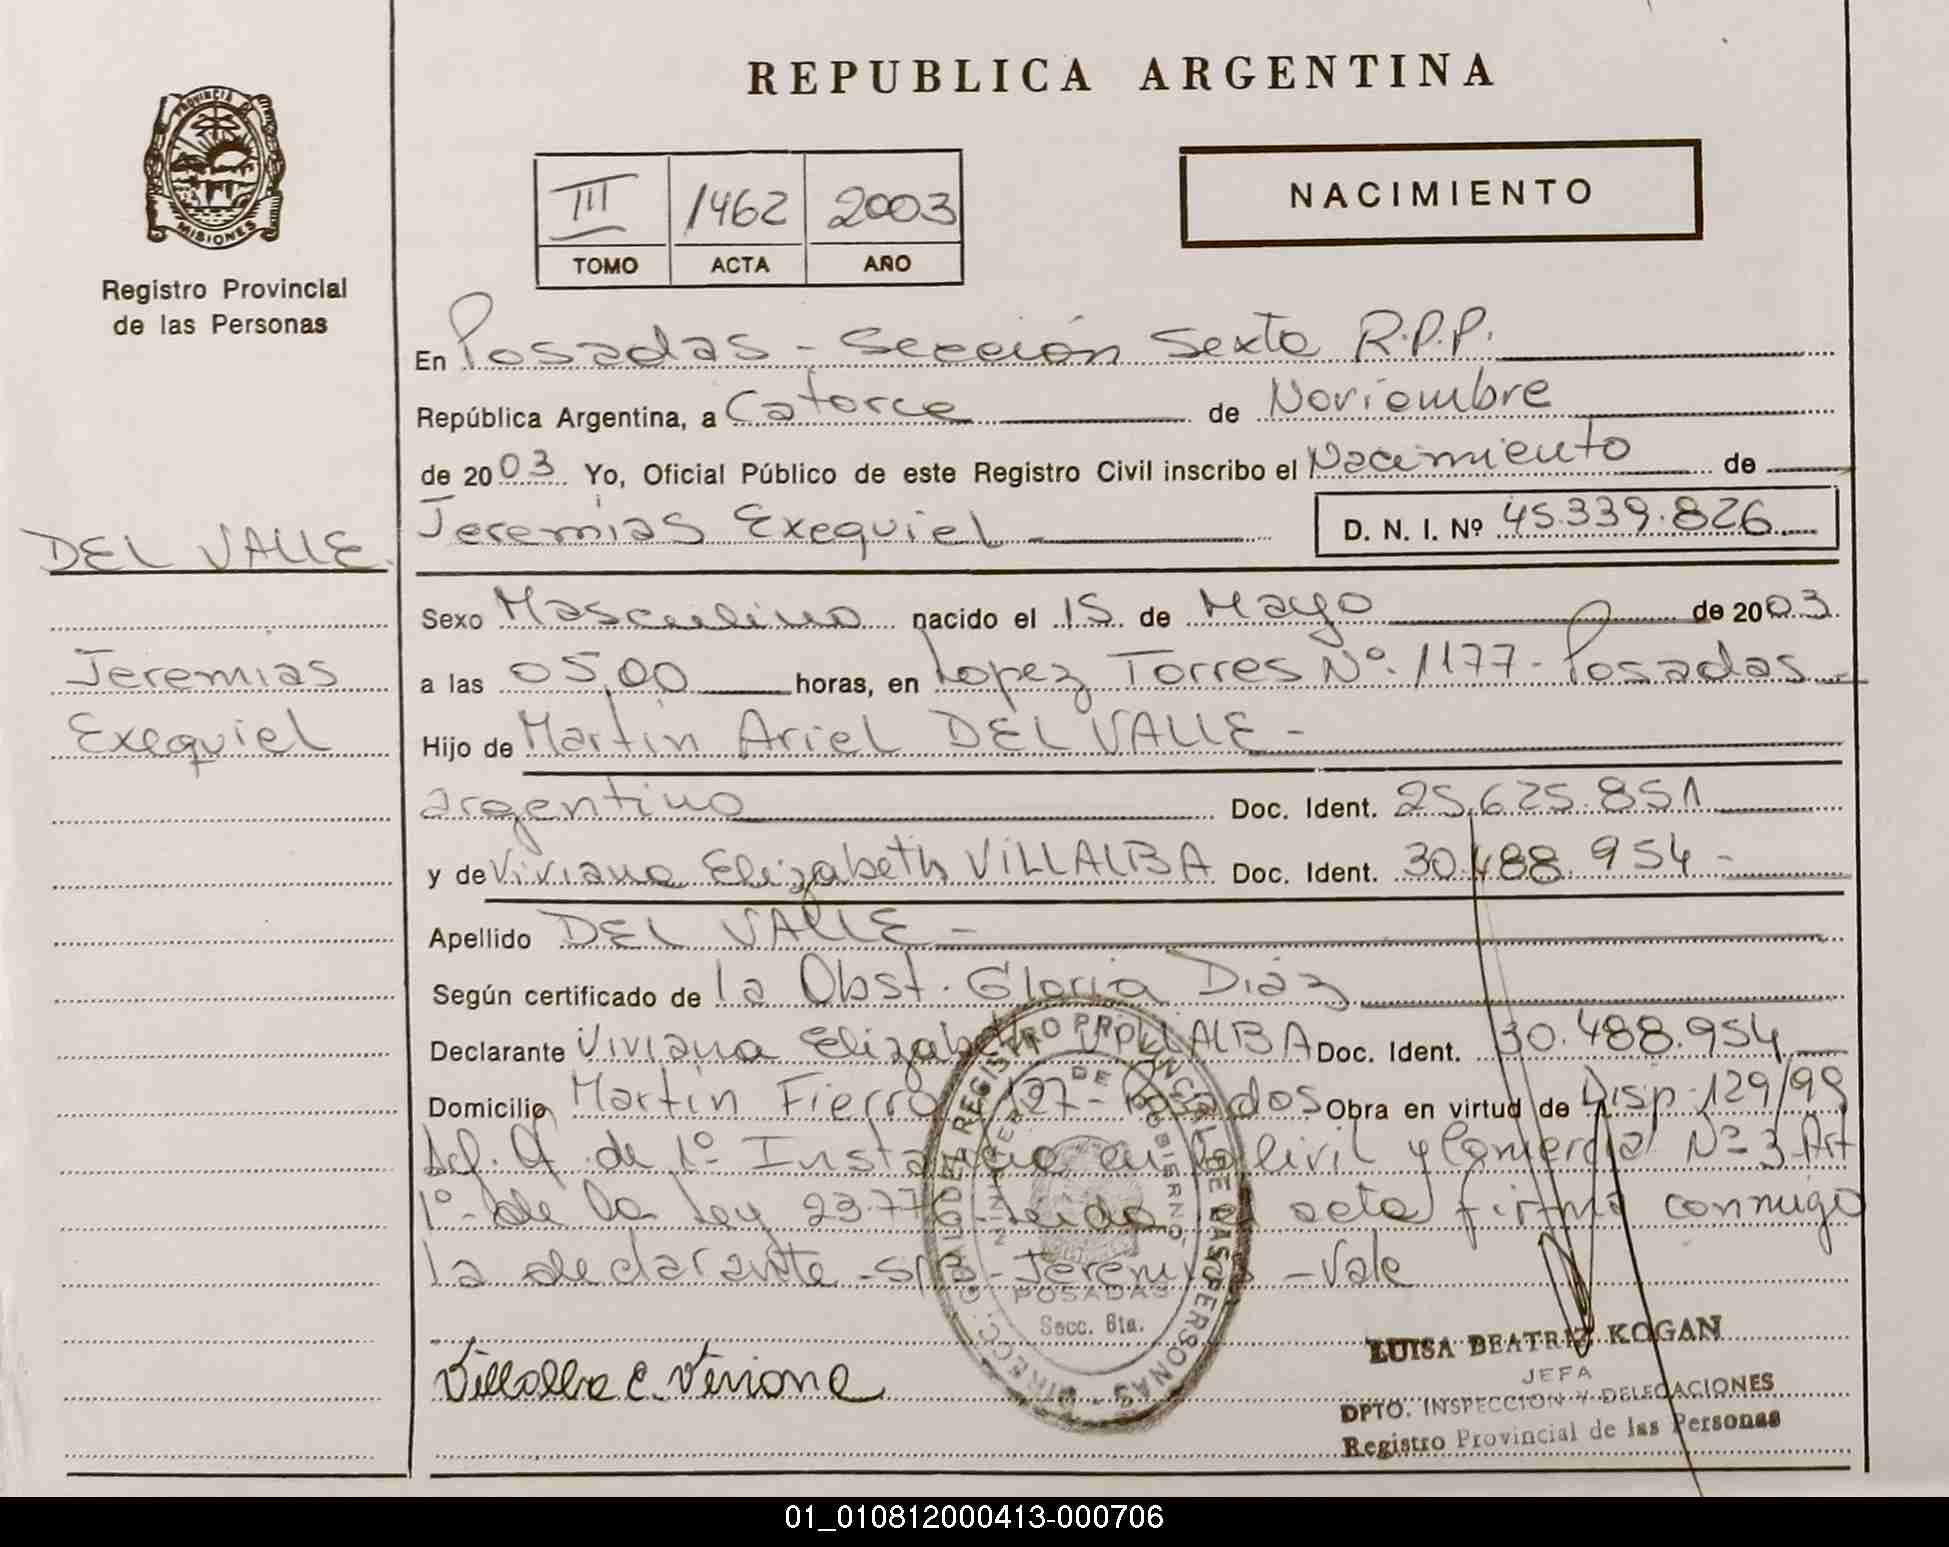 REPUBLICA ARGENTINA
PROVINCIA DE
MISIONES
Registro Provincial
de las Personas
III 1462 2003
TOMO ACTA AÑO
NACIMIENTO
En Posadas - Sección Sexta R.P.P.
República Argentina, a Catorce de Noviembre
de 2003 Yo, Oficial Público de este Registro Civil inscribo el Nacimiento de
Jeremias Exequiel D. N. I. Nº 45.339.826
DEL VALLE
Jeremias
Exequiel
Sexo Masculino nacido el 15 de Mayo de 2003
a las 05,00 horas, en Lopez Torres Nº 1177 - Posadas
Hijo de Martin Ariel DEL VALLE -
argentino Doc. Ident. 25.625.851
y de Viviana Elizabeth VILLALBA Doc. Ident. 30.488.954 -
Apellido DEL VALLE -
Según certificado de la Obst. Gloria Diáz
Declarante Viviana Elizabeth VILLALBA Doc. Ident. 30.488.954
Domicilio Martin Fierro 127 - Posadas Obra en virtud de Disp. 129/99
de 1º Instancia en lo Civil y Comercial Nº 3 Art
1º de la Ley 23.776 Leida el acta firma conmigo
la declarante - S/B - Jeremias - Vale
DIRECC. REGISTRO PROVINCIAL DE LAS PERSONAS
POSADAS
Secc. 6ta.
Villalba E. Viviana
LUISA BEATRIZ KOGAN
JEFA
DPTO. INSPECCION Y DELEGACIONES
Registro Provincial de las Personas
01_010812000413-000706